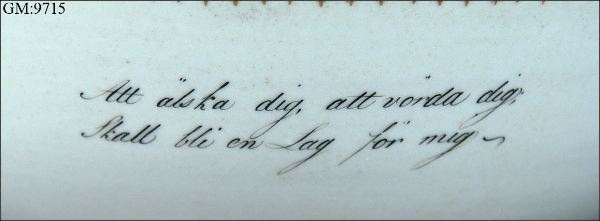 GM:9715
Att älska dig, att vörda dig;
Skall bli en Lag för mig~